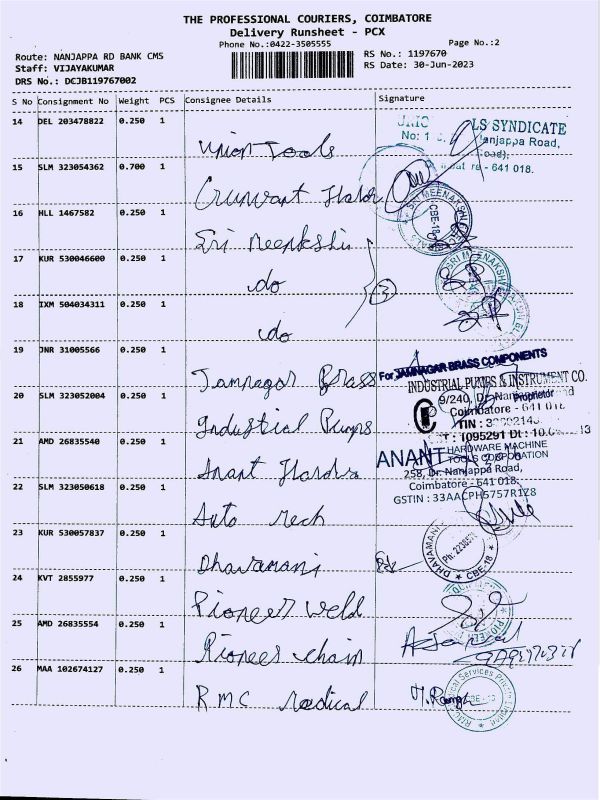 THE PROFESSIONAL COURIERS, COIMBATORE
Delivery Runsheet - PCX
Phone No.:0422-3505555 Page No.:2
Route: NANJAPPA RD BANK CMS RS No.: 1197670
Staff: VIJAYAKUMAR RS Date: 30-Jun-2023
DRS No.: DCJB119767002
S No Consignment No Weight PCS Consignee Details Signature
14 DEL 203478822 0.250 1
Union Tools
LS SYNDICATE
No: 1
Nanjappa Road,
- 641 018.
15 SLM 323054362 0.700 1
16 HLL 1467582 0.250 1
Sri Meenakshi
SRI MEENAKSHI
CBE-18
17 KUR 530046600 0.250 1
do
3
SRI MEENAKSHI
18 IXM 504034311 0.250 1
do
19 JNR 31005566 0.250 1
Jamnagar Brass
For JAMNAGAR BRASS COMPONENTS
Proprietor
20 SLM 323052004 0.250 1
Industrial Pumps
INDUSTRIAL PUMPS & INSTRUMENT CO.
9/240, Dr. Nanjappa Road
Coimbatore - 641 018
TIN :
: 1095291 Dt :
21 AMD 26835540 0.250 1
Anant Hardw
ANANT HARDWARE MACHINE
TOOLS CORPORATION
258, Dr. Nanjappa Road,
Coimbatore - 641 018.
GSTIN : 33AACPH5757R1Z8
22 SLM 323050618 0.250 1
Auto Mech
23 KUR 530057837 0.250 1
Dhavamani
DHAVAMANI
CBE-18
24 KVT 2855977 0.250 1
Pioneer Weld
25 AMD 26835554 0.250 1
Pioneer Chain
PIONEER
26 MAA 102674127 0.250 1
RMC Medical
Medical Services Private Limited